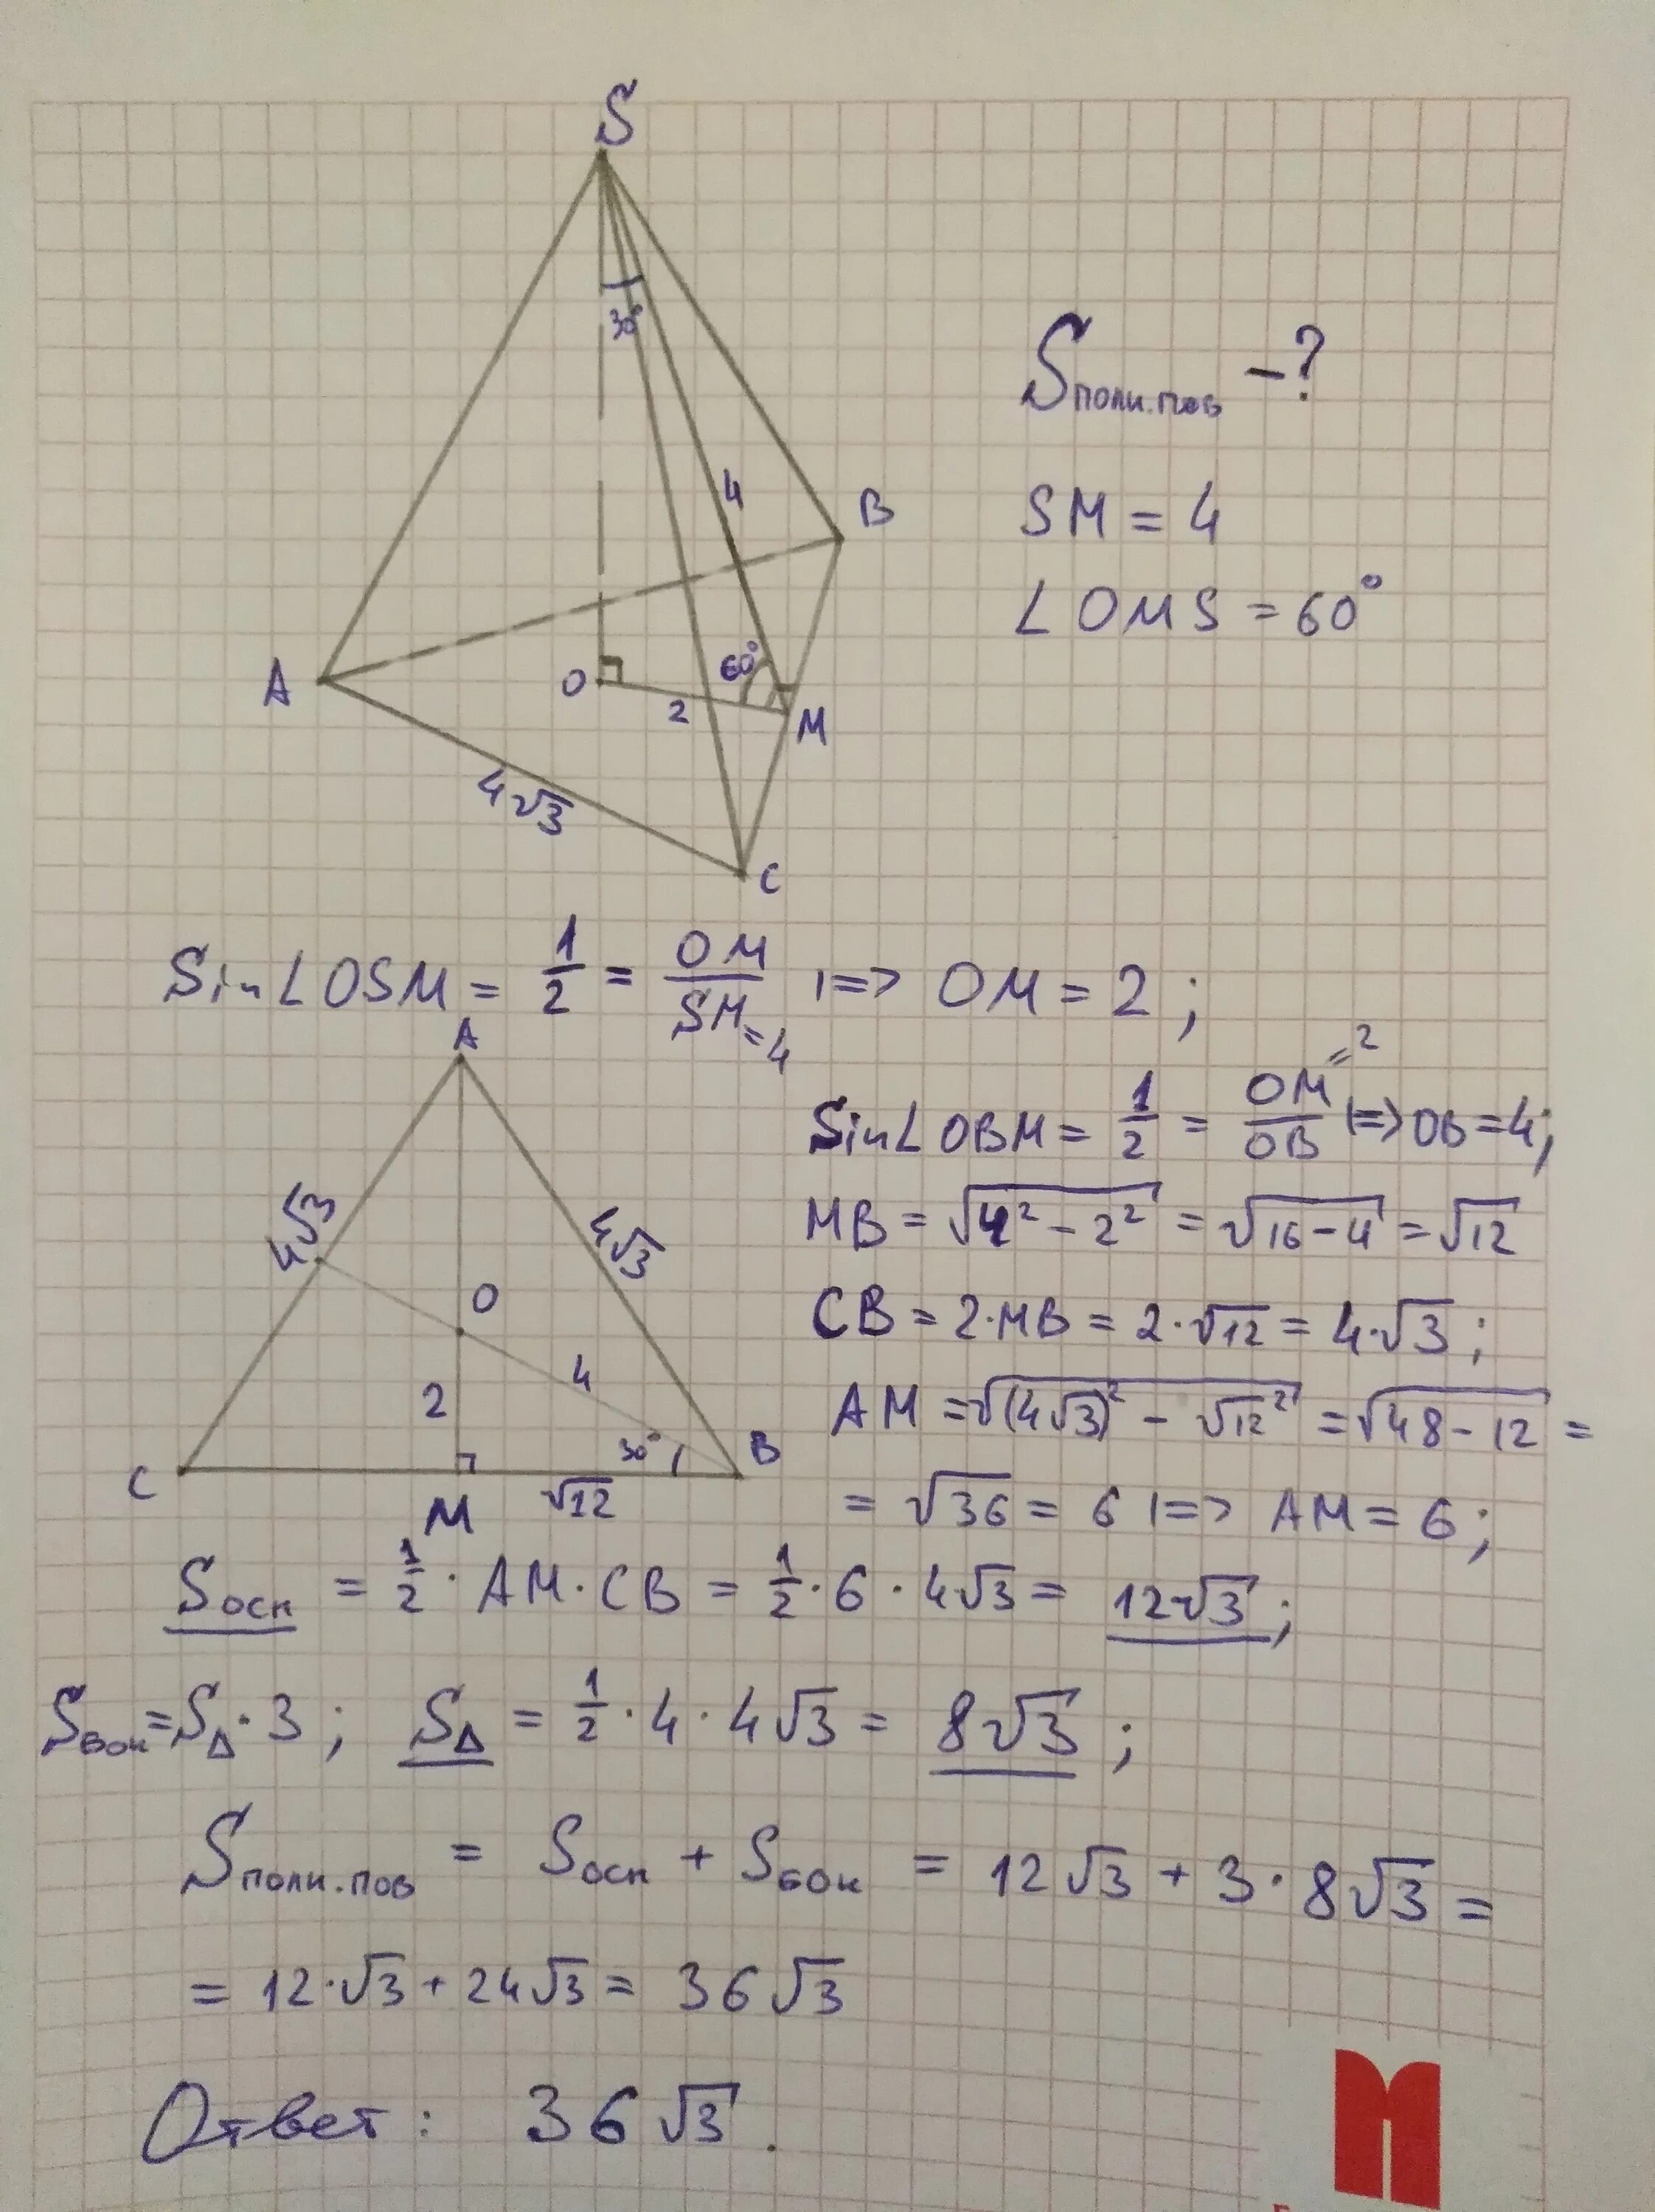 S
30°
4
B
A
O
60°
2
M
4√3
C
Sполн.пов - ?
SM = 4
∠OMS = 60°
Sin∠OSM = 1/2 = OM/SM=4 |=> OM = 2 ;
A
4√3
4√3
O
4
2
30°
C
M
√12
B
Sin∠OBM = 1/2 = OM=2/OB |=> OB = 4;
MB = √4² - 2² = √16 - 4 = √12
CB = 2·MB = 2·√12 = 4·√3 ;
AM = √(4√3)² - √12² = √48 - 12 =
= √36 = 6 |=> AM = 6 ;
Sосн = 1/2 · AM · CB = 1/2 · 6 · 4√3 = 12√3 ;
Sбок = S△ · 3 ; S△ = 1/2 · 4 · 4√3 = 8√3 ;
Sполн.пов = Sосн + Sбок = 12√3 + 3 · 8√3 =
= 12·√3 + 24√3 = 36√3
Ответ : 36√3 .